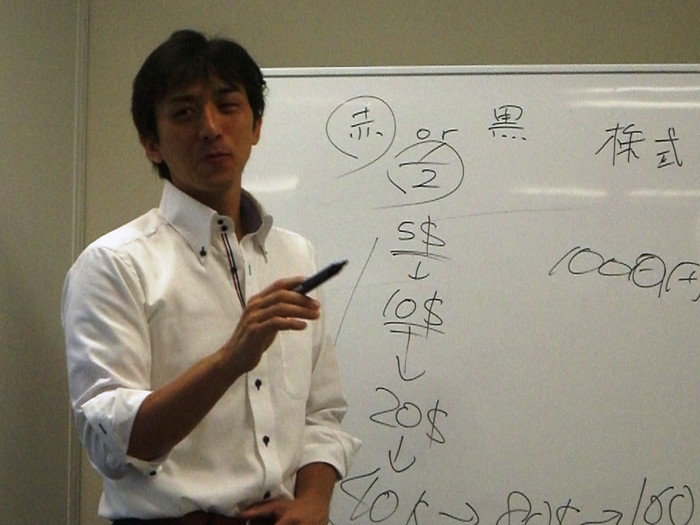 赤 or 黒
1/2
株式
5$
↓
1000円
10$
↓
20$
↓
40$ → 80$ → 160